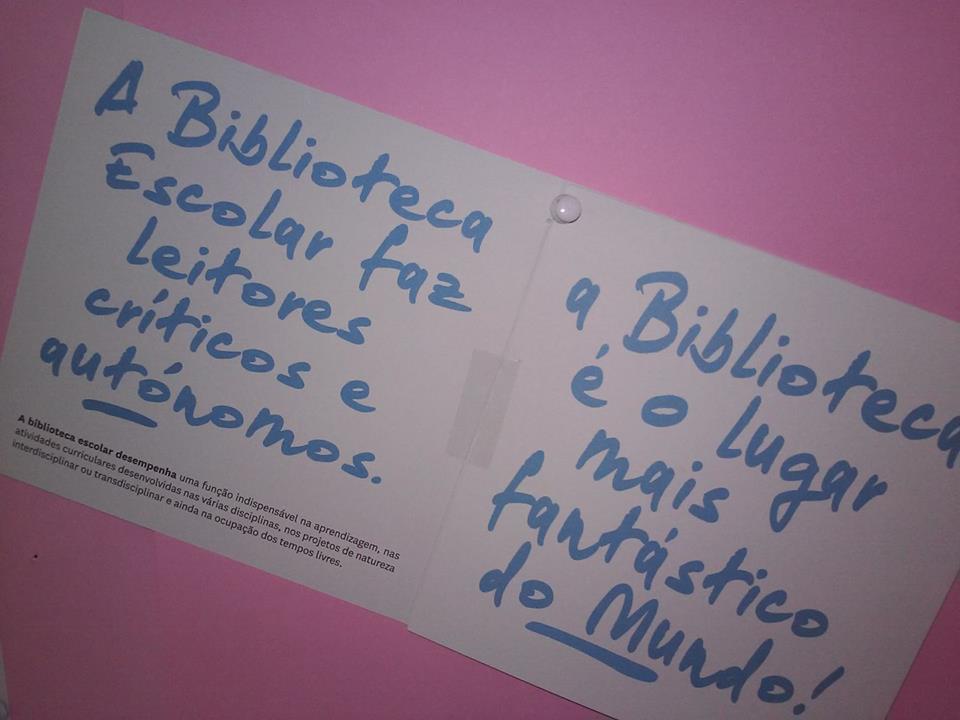 A Biblioteca
Escolar faz
leitores
críticos e
autónomos.
A biblioteca escolar desempenha uma função indispensável na aprendizagem, nas
atividades curriculares desenvolvidas nas várias disciplinas, nos projetos de natureza
interdisciplinar ou transdisciplinar e ainda na ocupação dos tempos livres.
a Biblioteca
é o lugar
mais
fantástico
do Mundo!